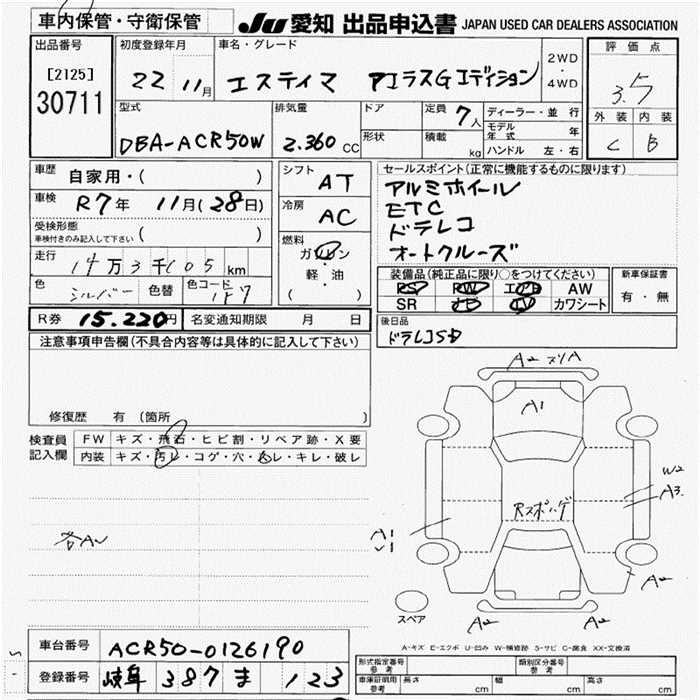 車内保管・守衛保管 JU 愛知 出品申込書 JAPAN USED CAR DEALERS ASSOCIATION
出品番号
[2125]
30711
初度登録年月
22 11月
車名・グレード
エスティマ アエラスGエディション
2WD
・
4WD
評価点
3.5
外装 内装
C B
型式
DBA-ACR50W
排気量
2.360 cc
ドア
形状
定員 7人
積載 kg
ディーラー・並行
モデル年式 年
ハンドル 左・右
車歴 自家用・( )
車検 R7年 11月(28日)
受検形態
車検付きのみ記入して下さい ( )
走行 14万3千105km
色 シルバー 色替 色コード 1F7
シフト AT
冷房 AC
燃料
ガソリン
軽・油
( )
セールスポイント(正常に機能するものに限ります)
アルミホイール
ETC
ドラレコ
オートクルーズ
装備品(純正品に限り○をつけてください)
PS PW エアB AW
SR ナビ TV カワシート
新車保証書
有・無
R券 15.220円 名変通知期限 月 日
後日品
ドラレコSD
注意事項申告欄(不具合内容等は具体的に記入して下さい)
修復歴 有(箇所 )
検査員記入欄
FW キズ・飛石・ヒビ割・リペア跡・X要
内装 キズ・汚レ・コゲ・穴・スレ・キレ・破レ
各A
A2 スリA
A1
W2
A3
Rスポイ
A1
A2
A2
A2
スペア
A-キズ E-エクボ U-凹み W-補修跡 S-サビ C-腐食 XX-交換済
車台番号 ACR50-0126190
登録番号 岐阜 387 ま 123
形式指定番号
参考
類別区分番号
参考
車庫証明用
参考
長さ cm 幅 cm 高さ cm